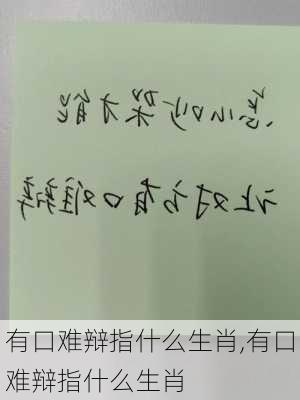 怎么吵架才能
让对方有口难辩
有口难辩指什么生肖,有口
难辩指什么生肖